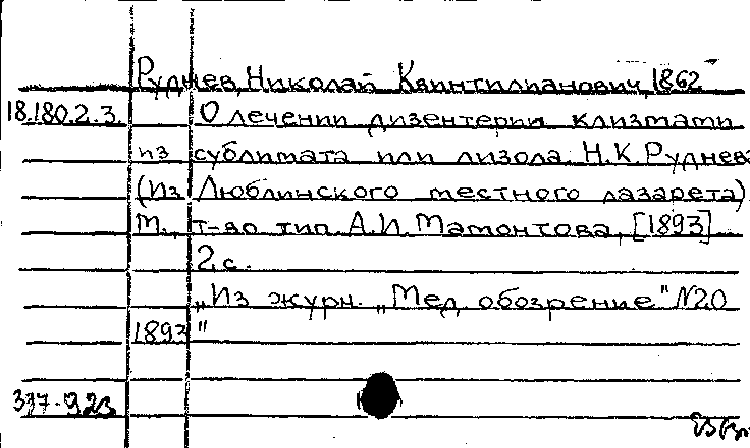 Руднев, Николай Квинтилианович, 1862
18.180.2.3. О лечении дизентерии клизмами
из сублимата или лизола. Н.К. Руднева
(Из Люблинского местного лазарета)
М., т-во тип. А.И. Мамонтова, [1893]
2 с.
„Из журн. „Мед. обозрение" №20
1893"